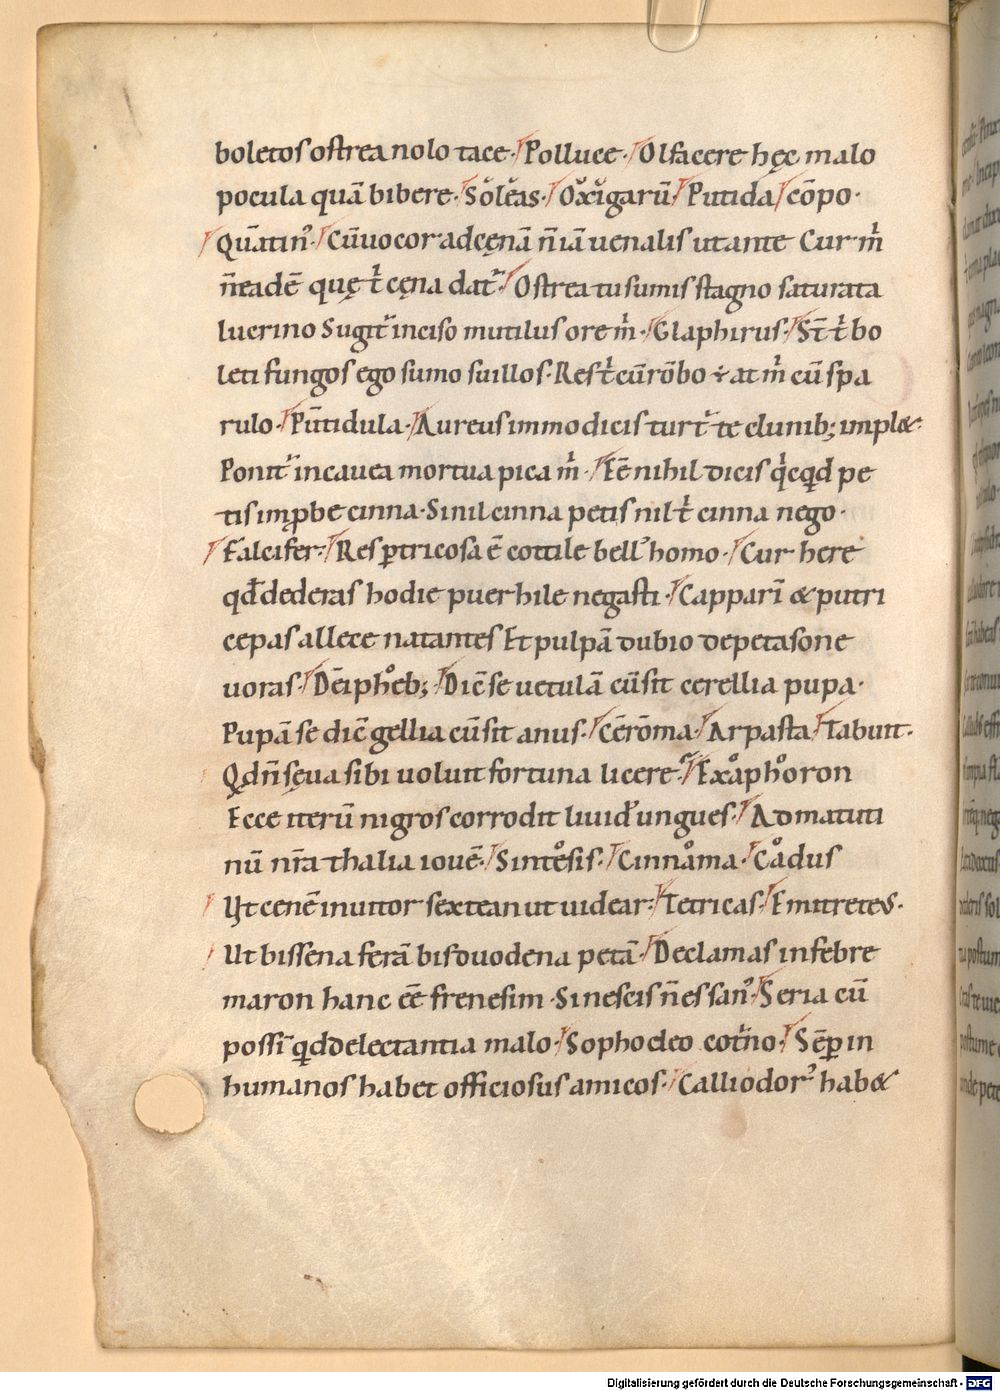 boletos ostrea nolo tace· Polluce· Olfacere hęc malo
pocula quā bibere· Soleas· Oxigarū· Putida cōpo·
Quātin᾽· Cū uocor ad cęnā ñ iā uenalis ut ante Cur m̓
ñ eadē quę t̓ cęna dat᷑· Ostrea tu sumis stagno saturata
lucrino Sugit᷑ inciso mutilus ore m̓· Glaphirus· St̄ t̓ bo
leti fungos ego sumo suillos· Res t̓ cū rōbo ÷ at m̓ cū spa
rulo· Pūtidula· Aureus immodicis turt᷑ te clunib; impl&·
Ponit᷑ in cauea mortua pica m̓· Eē nihil dicis q̓cqd pe
tis improbe cinna· Si nil cinna petis nil t̓ cinna nego·
Falcifer· Res ꝑtricosa ē cottile bell᾽ homo· Cur here
qđ dederas hodie puer hile negasti· Capparī & putri
cepas allece natantes Et pulpā dubio de petasone
uoras· Dēiphoeb;· Dic̄ se uetulā cū sit cerellia pupa·
Pupā se dic̄ gellia cū sit anus· Cērōma· Arpasta· Tabuit·
Qđ ñ sęua sibi uoluit fortuna licere· Exaphoron
Ecce iterū nigros corrodit liuid᾽ ungues· Ad matuti
nū nr̄a thalia iouē· Sintesis· Cinnama· Cadus
Ut cenē inuitor sexte an ut uidear· Tetricas· Emitretes·
Ut bis sena ferā bis duodena petā· Declamas in febre
maron hanc eē frenesim· Si nescis ñ es san᾽· Seria cū
possī qđ delectantia malo· Sophocleo cot̓no· Sēꝑ in
humanos habet officiosus amicos· Calliodor᾽ hab&